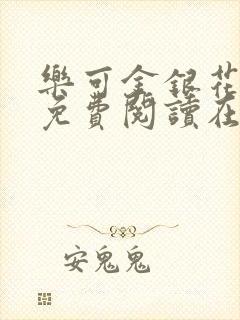 樂可金銀花
免費閱讀在
安鬼鬼